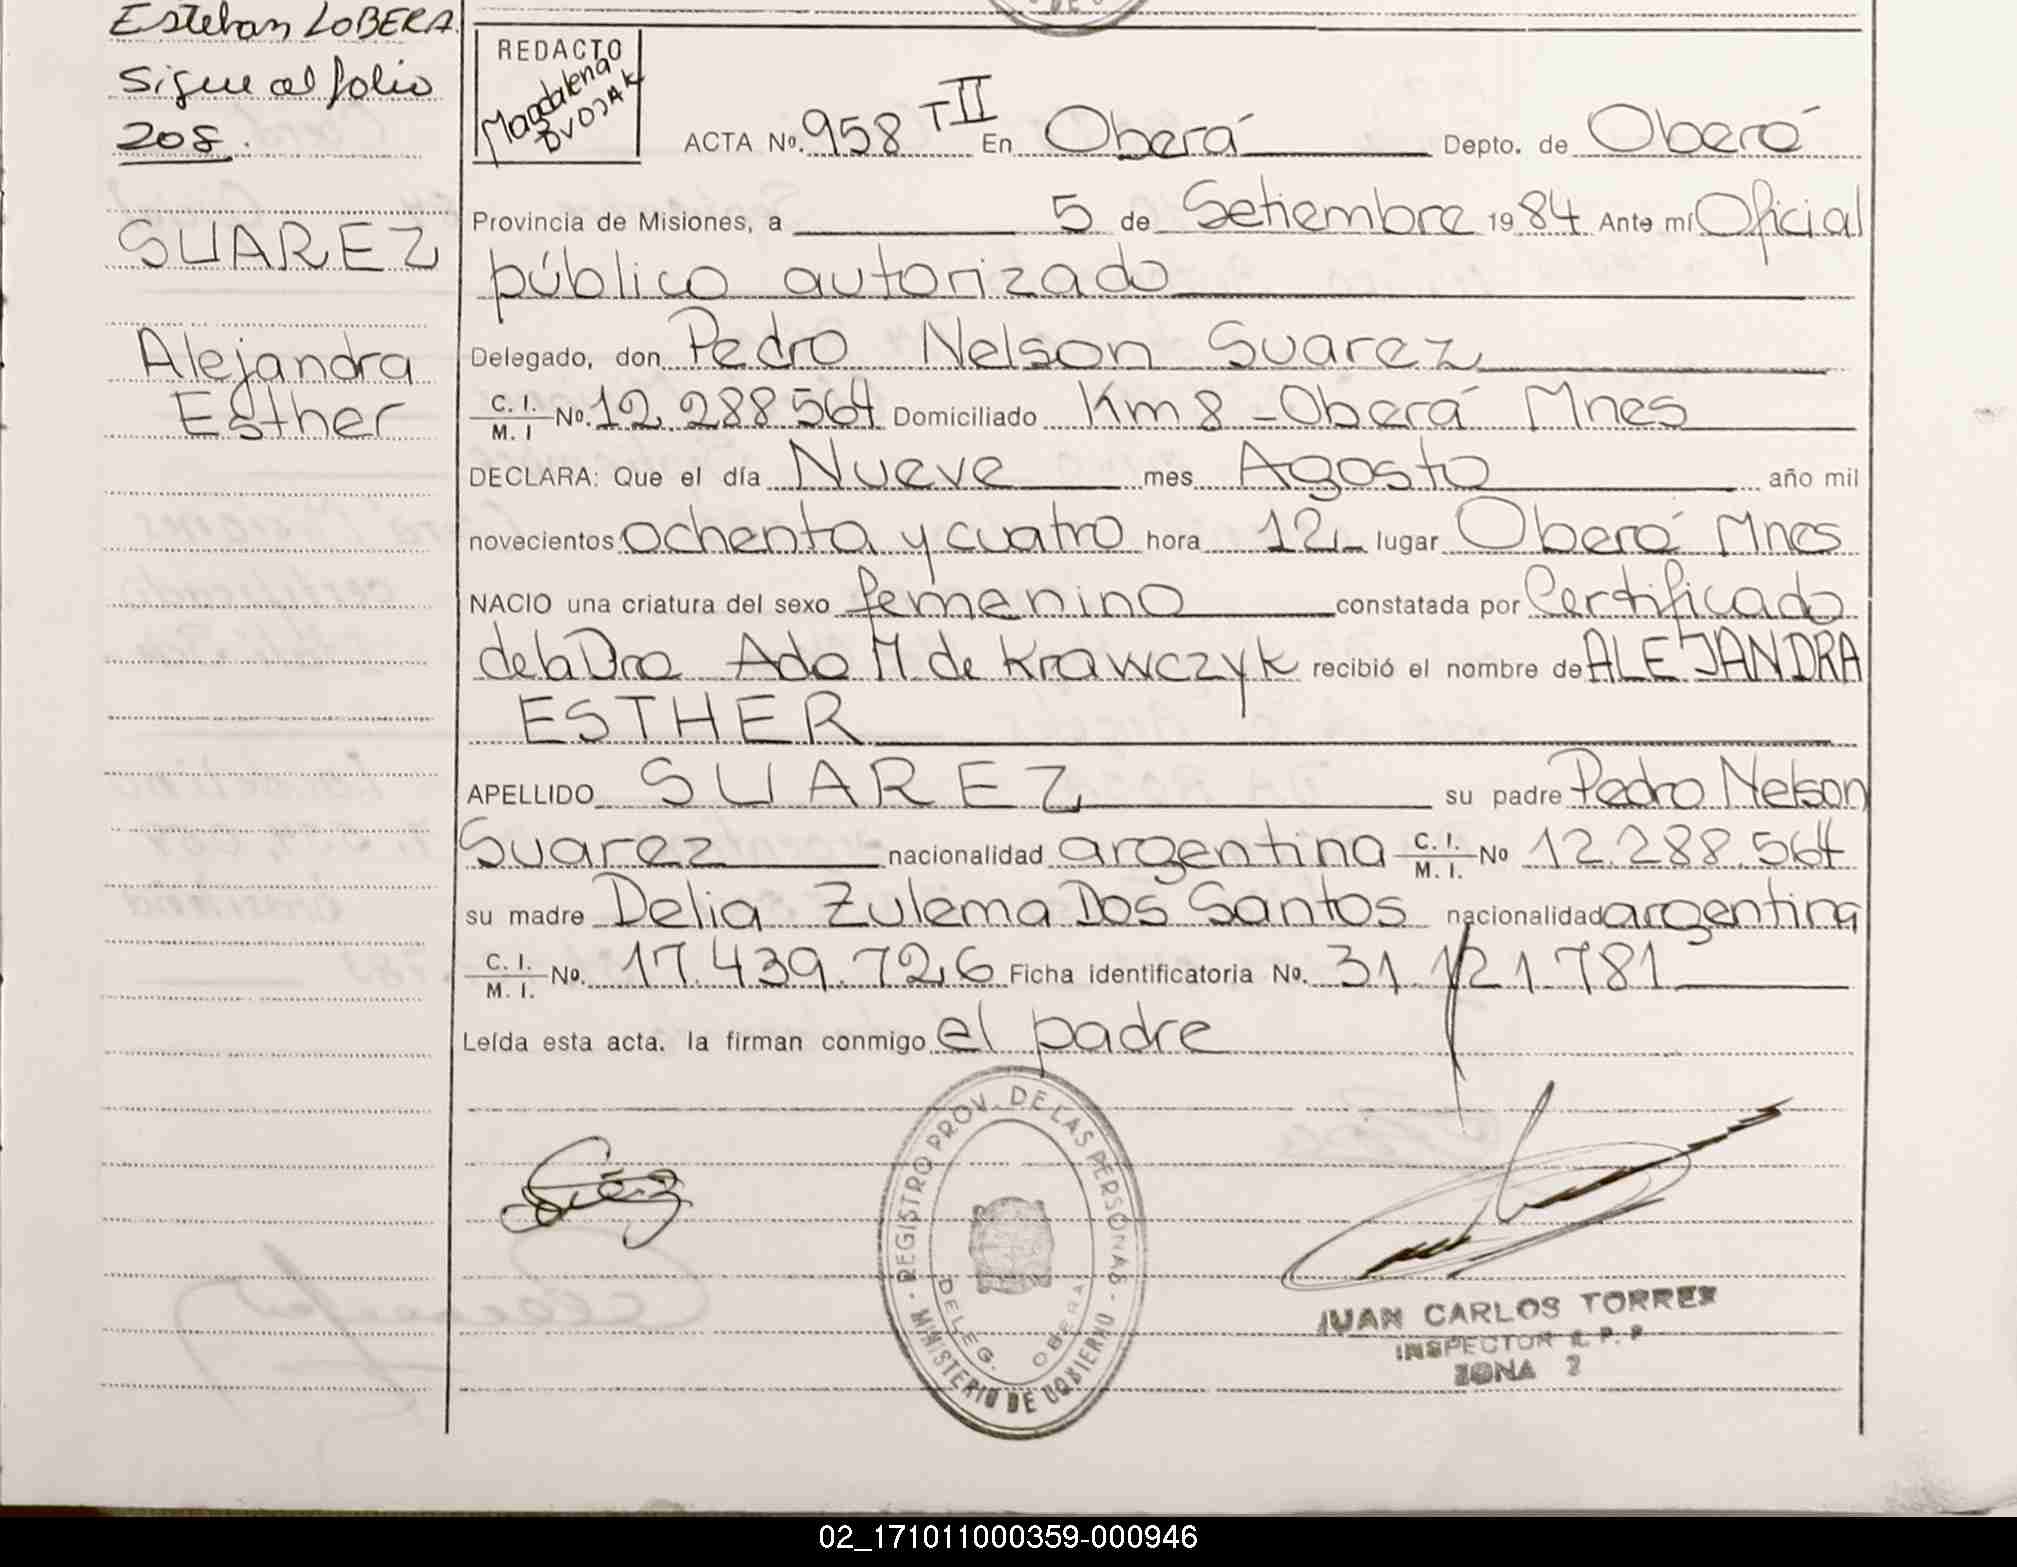 Esteban LOBERA.
Sigue al folio
208.
SUAREZ
Alejandra
Esther
REDACTO
Magdalena
DVOJAK
ACTA Nº. 958 TII En Oberá Depto. de Oberá
Provincia de Misiones, a 5 de Setiembre 1984 Ante mí Oficial
público autorizado
Delegado, don Pedro Nelson Suarez
C. I. M. I Nº. 12.288564 Domiciliado Km 8 - Oberá Mnes
DECLARA: Que el día Nueve mes Agosto año mil
novecientos ochenta y cuatro hora 12 lugar Oberá Mnes
NACIO una criatura del sexo femenino constatada por Certificado
de la Dra Ada M de Krawczyk recibió el nombre de ALEJANDRA
ESTHER
APELLIDO SUAREZ su padre Pedro Nelson
Suarez nacionalidad argentina C. I. M. I. Nº 12.288.564
su madre Delia Zulema Dos Santos nacionalidad argentina
C. I. M. I. Nº. 17.439.726 Ficha identificatoria Nº. 31.121.781
Leída esta acta. la firman conmigo el padre
REGISTRO PROV. DE LAS PERSONAS
DELEG. OBERA
MINISTERIO DE GOBIERNO
JUAN CARLOS TORRES
INSPECTOR R. P. P
ZONA 2
02_171011000359-000946